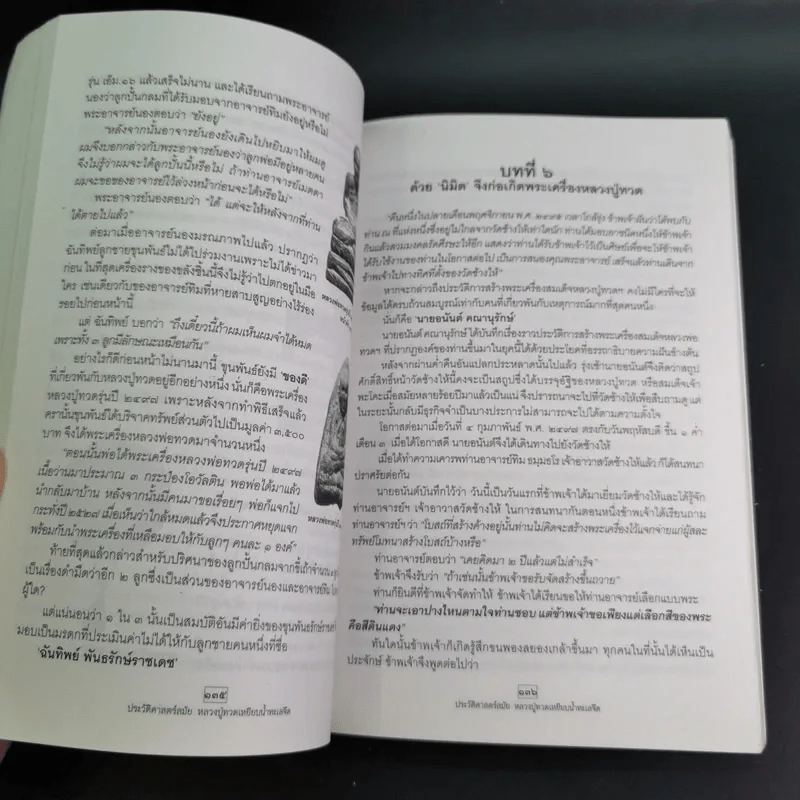 รุ่น เอ็ม.๑๖ แล้วเสร็จไม่นาน และได้เรียนถามพระอาจารย์
นองว่าลูกปั้นกลมที่ได้รับมอบจากอาจารย์ทิมยังอยู่หรือไม่
พระอาจารย์นองตอบว่า "ยังอยู่"
"หลังจากนั้นอาจารย์นองยังเดินไปหยิบมาให้ผมดู
ผมจึงบอกกล่าวกับพระอาจารย์นองว่าลูกพ่อมีอยู่หลายคน
จึงไม่รู้ว่าผมจะได้ลูกปั้นนี้หรือไม่ ถ้าท่านอาจารย์เมตตา
ผมจะขอของอาจารย์ไว้ล่วงหน้าก่อนจะได้หรือไม่"
พระอาจารย์นองตอบว่า "ได้ แต่จะให้หลังจากที่ท่าน
ได้ตายไปแล้ว"
ต่อมาเมื่ออาจารย์นองมรณภาพไปแล้ว ปรากฏว่า
ฉันทิพย์ลูกชายขุนพันธ์ไม่ได้ไปร่วมงานเพราะไม่ได้ข่าวมา
ก่อน ในที่สุดเครื่องรางของขลังชิ้นนี้จึงไม่รู้ว่าไปตกอยู่ในมือ
ใคร เช่นเดียวกับของอาจารย์ทิมที่หายสาบสูญอย่างไร้ร่อง
รอยไปก่อนหน้านี้
แต่ ฉันทิพย์ บอกว่า "ถึงเดี๋ยวนี้ถ้าผมเห็นผมจำได้หมด
เพราะทั้ง ๓ ลูกมีลักษณะเหมือนกัน"
อย่างไรก็ดีก่อนหน้าไม่นานมานี้ ขุนพันธ์ยังมี 'ของดี'
ที่เกี่ยวพันกับหลวงปู่ทวดอยู่อีกอย่างหนึ่ง นั่นก็คือพระเครื่อง
หลวงปู่ทวดรุ่นปี ๒๔๙๗ เพราะหลังจากทำพิธีเสร็จแล้ว
ครานั้นขุนพันธ์ได้บริจาคทรัพย์ส่วนตัวไปเป็นมูลค่า ๓,๕๐๐
บาท จึงได้พระเครื่องหลวงพ่อทวดมาจำนวนหนึ่ง
"ตอนนั้นพ่อได้พระเครื่องหลวงพ่อทวดรุ่นปี ๒๔๙๗
เนื้อว่านมาประมาณ ๓ กระป๋องโอวัลติน พอพ่อได้มาแล้ว
นำกลับมาบ้าน หลังจากนั้นมีคนมาขอเรื่อยๆ พ่อก็แจกไป
กระทั่งปี ๒๕๒๗ เมื่อเห็นว่าใกล้หมดแล้วจึงประกาศหยุดแจก
พร้อมกับนำพระเครื่องที่เหลือมอบให้กับลูกๆ คนละ ๑ องค์"
ท้ายที่สุดแล้วกล่าวสำหรับปริศนาของลูกปั้นกลมจากขี้เถ้าจำนวน
เป็นเรื่องดำมืดว่าอีก ๒ ลูกซึ่งเป็นส่วนของอาจารย์นองและอาจารย์ทิม
ผู้ใด?
แต่แน่นอนว่า ๑ ใน ๓ นั้นเป็นสมบัติอันมีค่ายิ่งของขุนพันธรักษ์ราชเดช
มอบเป็นมรดกที่ประเมินค่าไม่ได้ให้กับลูกชายคนหนึ่งที่ชื่อ
'ฉันทิพย์ พันธรักษ์ราชเดช'
๑๓๕
ประวัติศาสตร์สมัย หลวงปู่ทวดเหยียบน้ำทะเลจืด
บทที่ ๖
ด้วย 'นิมิต' จึงก่อเกิดพระเครื่องหลวงปู่ทวด
"คืนหนึ่งในปลายเดือนพฤศจิกายน พ.ศ. ๒๔๙๖ เวลาใกล้รุ่ง ข้าพเจ้าฝันว่าได้พบกับ
ท่าน ณ ที่แห่งหนึ่งซึ่งอยู่ไม่ไกลจากวัดช้างให้เท่าใดนัก ท่านได้มอบยาชนิดหนึ่งให้ข้าพเจ้า
กินแล้วสวมมงคลรัดศีรษะให้อีก แสดงว่าท่านได้รับข้าพเจ้าไว้เป็นศิษย์เพื่อจะให้ข้าพเจ้า
ได้รับใช้งานของท่านในโอกาสต่อไป เป็นการสนองคุณพระอาจารย์ เสร็จแล้วท่านเดินจาก
ข้าพเจ้าไปทางทิศที่ตั้งของวัดช้างให้"
หากจะกล่าวถึงประวัติการสร้างพระเครื่องสมเด็จหลวงปู่ทวดฯ คงไม่มีใครที่จะให้
ข้อมูลได้ครบถ้วนสมบูรณ์เท่ากับคนที่เกี่ยวพันกับเหตุการณ์มากที่สุดคนหนึ่ง
นั่นก็คือ 'นายอนันต์ คณานุรักษ์'
นายอนันต์ คณานุรักษ์ ได้บันทึกเรื่องราวประวัติการสร้างพระเครื่องสมเด็จหลวงพ่อ
ทวดฯ ที่ปรากฏองค์ของท่านขึ้นมาในยุคนี้ได้ด้วยประโยคที่อรรถาธิบายความฝันข้างต้น
หลังจากผ่านค่ำคืนอันแปลกประหลาดนั้นไปแล้ว รุ่งเช้านายอนันต์จึงคิดว่าสถูป
ศักดิ์สิทธิ์หน้าวัดช้างให้นี้คงจะเป็นสถูปซึ่งได้บรรจุอัฐิของหลวงปู่ทวด หรือสมเด็จเจ้า
พะโคะเมื่อสมัยหลายร้อยปีมาแล้วเป็นแน่ จึงปรารถนาจะไปที่วัดช้างให้เพื่อสืบถามดู แต่
ในระยะนั้นกลับมีธุรกิจจำเป็นบางประการไม่สามารถจะไปได้ตามความตั้งใจ
โอกาสต่อมาเมื่อวันที่ ๔ กุมภาพันธ์ พ.ศ. ๒๔๙๗ ตรงกับวันพฤหัสบดี ขึ้น ๑ ค่ำ
เดือน ๓ เมื่อได้โอกาสดี นายอนันต์จึงได้เดินทางไปยังวัดช้างให้
เมื่อได้ทำความเคารพท่านอาจารย์ทิม ธมฺมธโร เจ้าอาวาสวัดช้างให้แล้ว ก็ได้สนทนา
ปราศรัยต่อกัน
นายอนันต์บันทึกไว้ว่า วันนี้เป็นวันแรกที่ข้าพเจ้าได้มาเยี่ยมวัดช้างให้และได้รู้จัก
ท่านอาจารย์ฯ เจ้าอาวาสวัดช้างให้ ในการสนทนากันตอนหนึ่งข้าพเจ้าได้เรียนถาม
ท่านอาจารย์ฯว่า "โบสถ์ที่สร้างค้างอยู่นั้นท่านไม่คิดจะสร้างพระเครื่องไว้แจกจ่ายแก่ผู้สละ
ทรัพย์โมทนาสร้างโบสถ์บ้างหรือ"
ท่านอาจารย์ตอบว่า "เคยคิดมา ๒ ปีแล้วแต่ไม่สำเร็จ"
ข้าพเจ้าจึงรับว่า "ถ้าเช่นนั้นข้าพเจ้าขอรับจัดสร้างขึ้นถวาย"
ท่านก็ยินดีที่ข้าพเจ้าจะจัดทำให้ ข้าพเจ้าได้เรียนขอให้ท่านอาจารย์เลือกแบบพระ
"ท่านจะเอาปางไหนตามใจท่านชอบ แต่ข้าพเจ้าขอเพียงแต่เลือกสีของพระ
คือสีดินแดง"
ทันใดนั้นข้าพเจ้าก็เกิดรู้สึกขนพองสยองเกล้าขึ้นมา ทุกคนในที่นั้นได้เห็นเป็น
ประจักษ์ ข้าพเจ้าจึงพูดต่อไปว่า
๑๓๖
ประวัติศาสตร์สมัย หลวงปู่ทวดเหยียบน้ำทะเลจืด